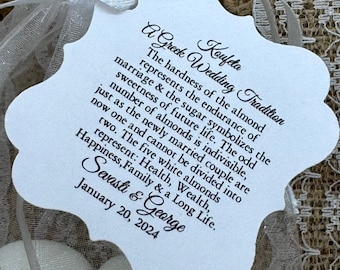 Koufeta
A Greek Wedding Tradition
The hardness of the almond
represents the endurance of
marriage & the sugar symbolizes the
sweetness of future life. The odd
number of almonds is indivisible,
just as the newly married couple are
now one and cannot be divided into
two. The five white almonds
represent: Health, Wealth,
Happiness, Family & a Long Life.
& George
January 20, 2024